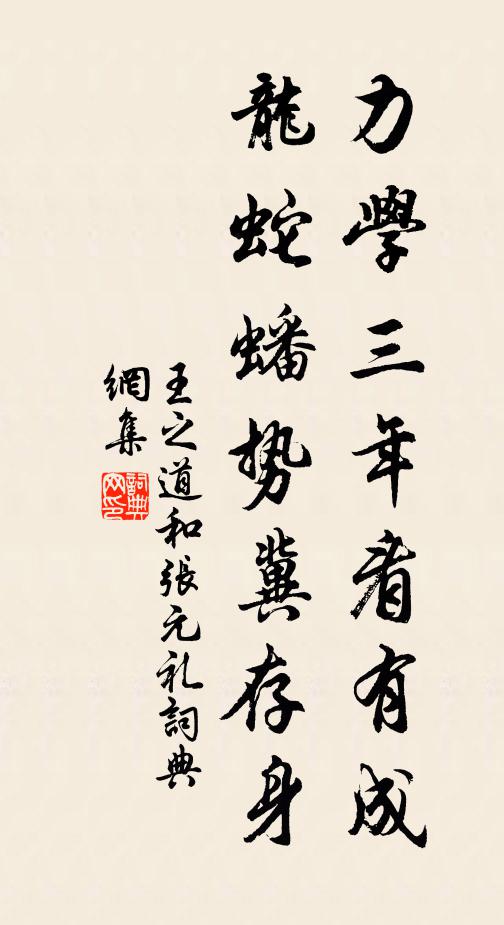 力學三年看有成
龍蛇蟠勢冀存身
王之道和張元礼詞典
網集
詞典
网印